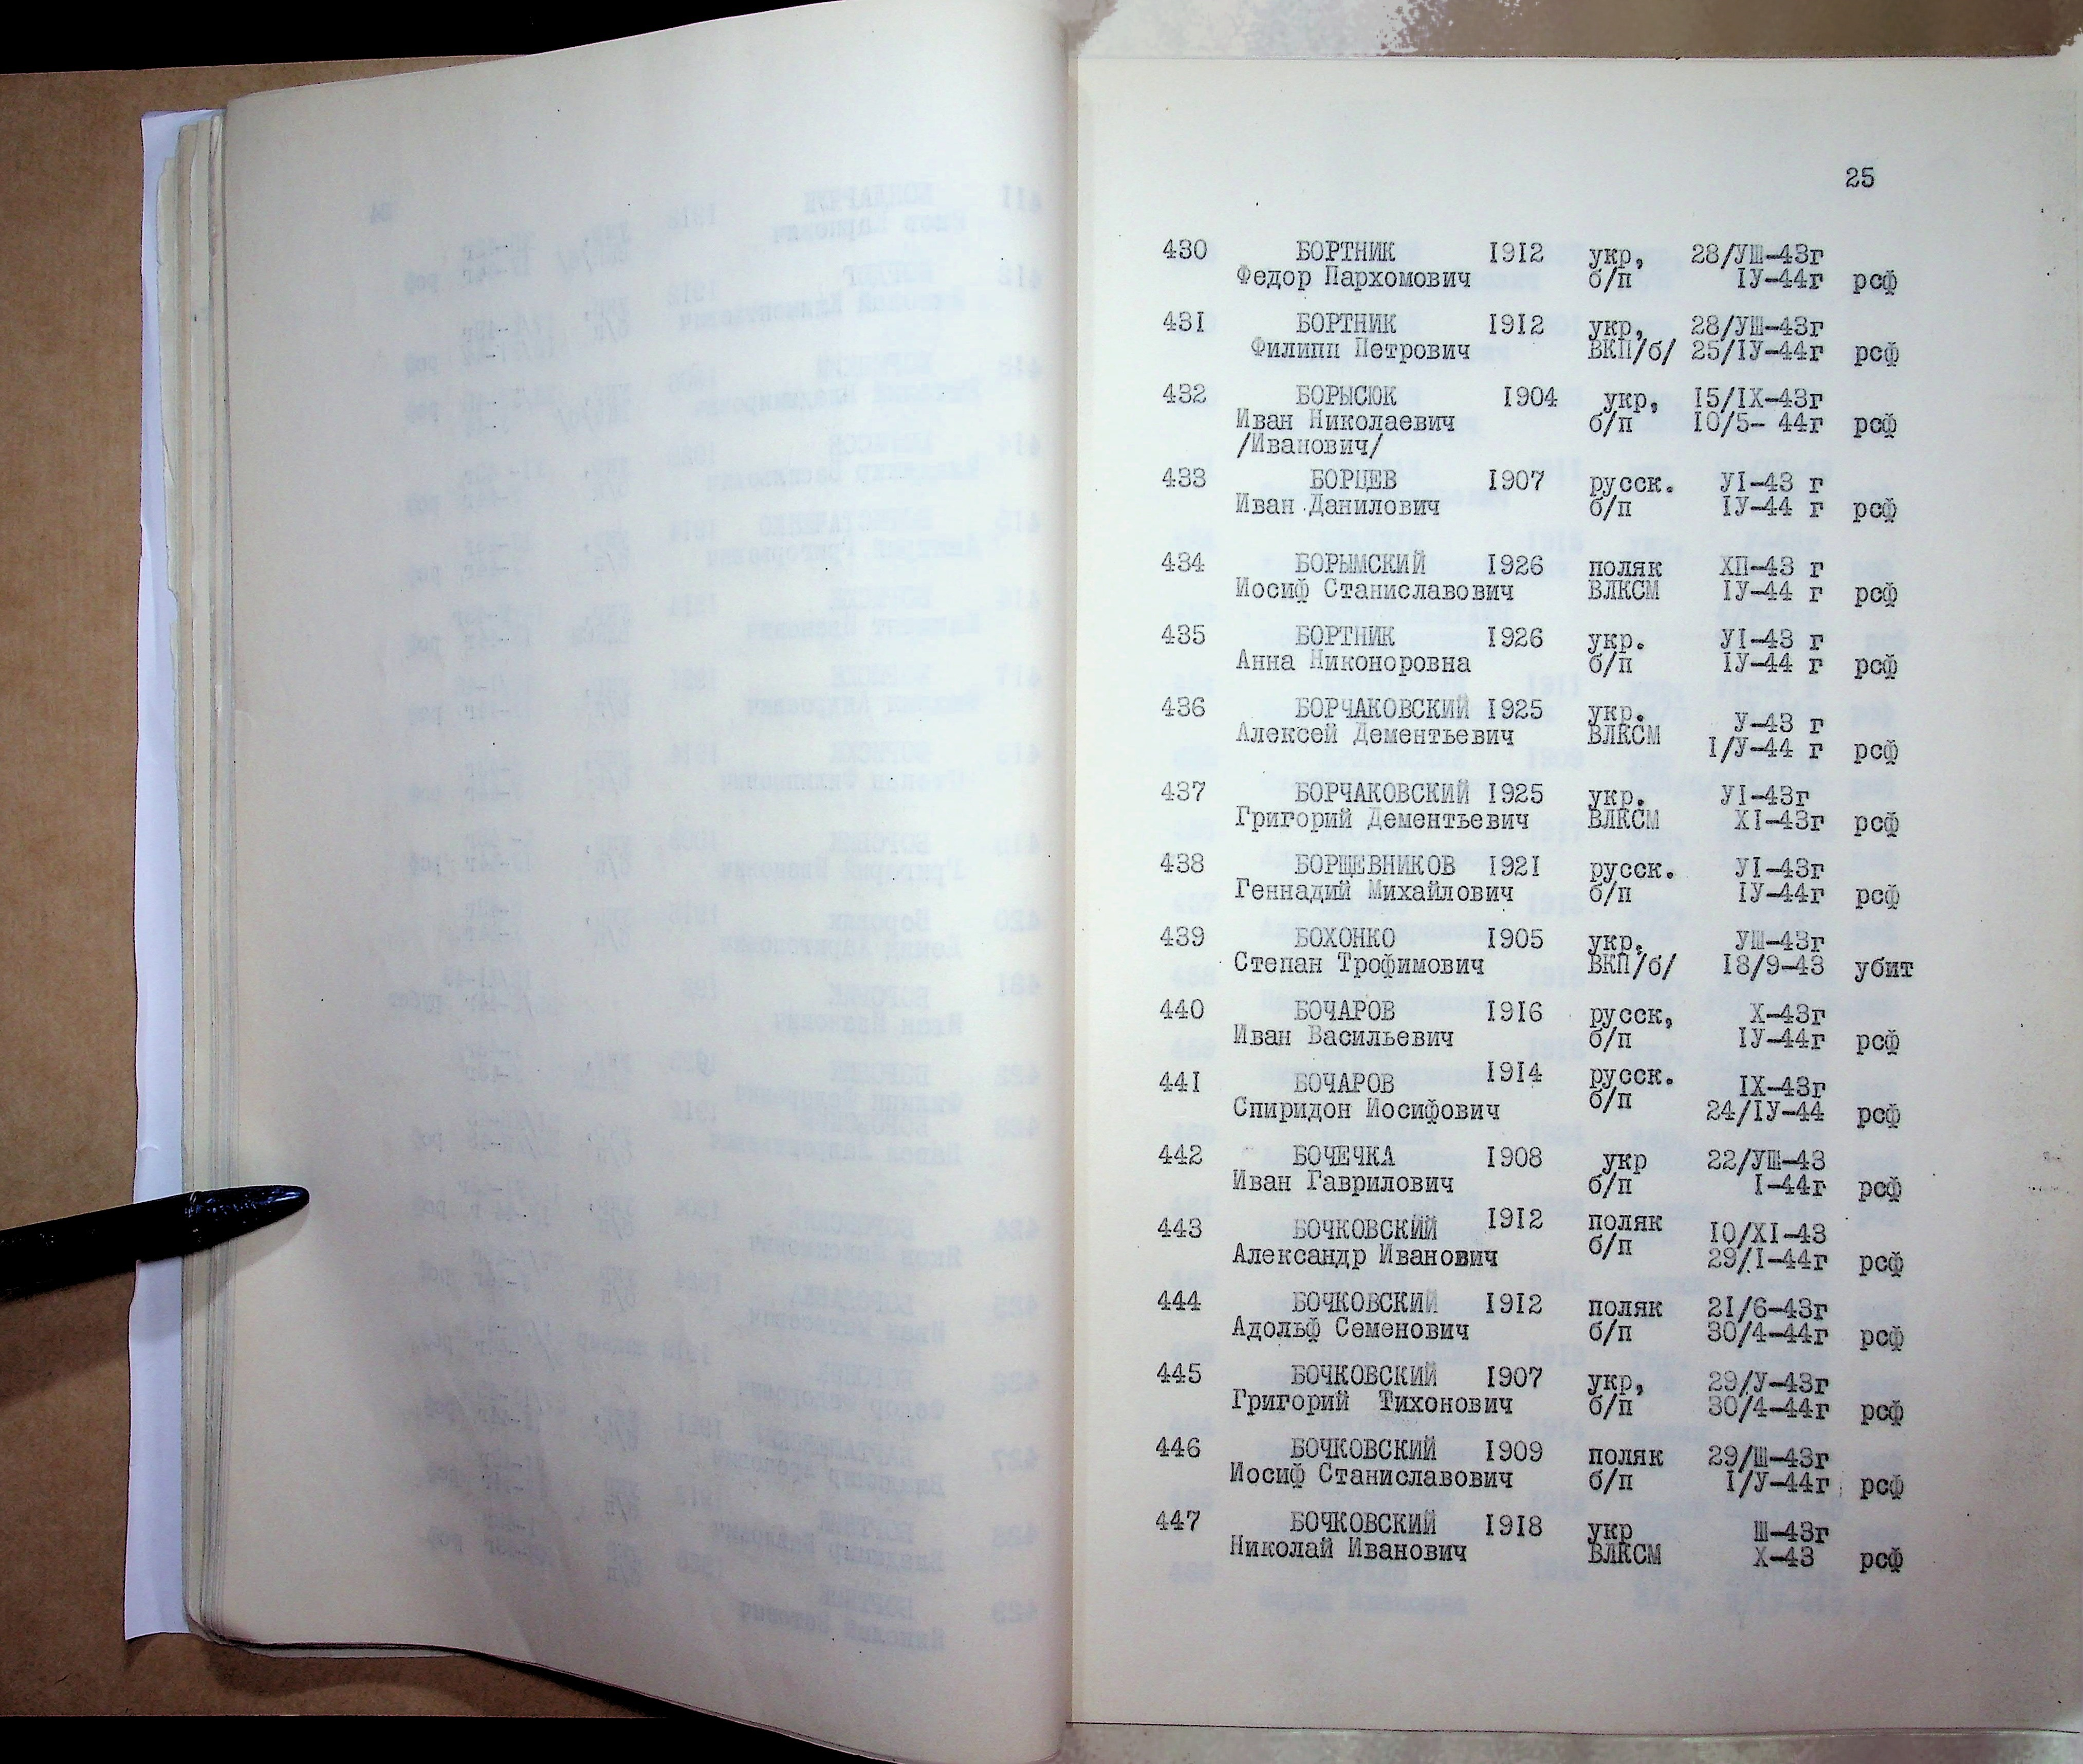 25
430 БОРТНИК 1912 укр, 28/УШ-43г
Федор Пархомович б/п IУ-44г рсф
431 БОРТНИК 1912 укр, 28/УШ-43г
Филипп Петрович ВКП/б/ 25/IУ-44г рсф
432 БОРЫСЮК 1904 укр, 15/IX-43г
Иван Николаевич б/п 10/5- 44г рсф
/Иванович/
433 БОРЦЕВ 1907 русск. УI-43 г
Иван Данилович б/п IУ-44 г рсф
434 БОРЫМСКИЙ 1926 поляк ХП-43 г
Иосиф Станиславович ВЛКСМ IУ-44 г рсф
435 БОРТНИК 1926 укр. УI-43 г
Анна Никоноровна б/п IУ-44 г рсф
436 БОРЧАКОВСКИЙ 1925 укр. У-43 г
Алексей Дементьевич ВЛКСМ I/У-44 г рсф
437 БОРЧАКОВСКИЙ 1925 укр. УI-43г
Григорий Дементьевич ВЛКСМ XI-43г рсф
438 БОРЩЕВНИКОВ 1921 русск. УI-43г
Геннадий Михайлович б/п IУ-44г рсф
439 БОХОНКО 1905 укр. УШ-43г
Степан Трофимович ВКП/б/ 18/9-43 убит
440 БОЧАРОВ 1916 русск, X-43г
Иван Васильевич б/п IУ-44г рсф
441 БОЧАРОВ 1914 русск. IX-43г
Спиридон Иосифович б/п 24/IУ-44 рсф
442 БОЧЕЧКА 1908 укр 22/УШ-43
Иван Гаврилович б/п I-44г рсф
443 БОЧКОВСКИЙ 1912 поляк 10/XI-43
Александр Иванович б/п 29/I-44г рсф
444 БОЧКОВСКИЙ 1912 поляк 21/6-43г
Адольф Семенович б/п 30/4-44г рсф
445 БОЧКОВСКИЙ 1907 укр, 29/У-43г
Григорий Тихонович б/п 30/4-44г рсф
446 БОЧКОВСКИЙ 1909 поляк 29/Ш-43г
Иосиф Станиславович б/п I/У-44г рсф
447 БОЧКОВСКИЙ 1918 укр Ш-43г
Николай Иванович ВЛКСМ X-43 рсф